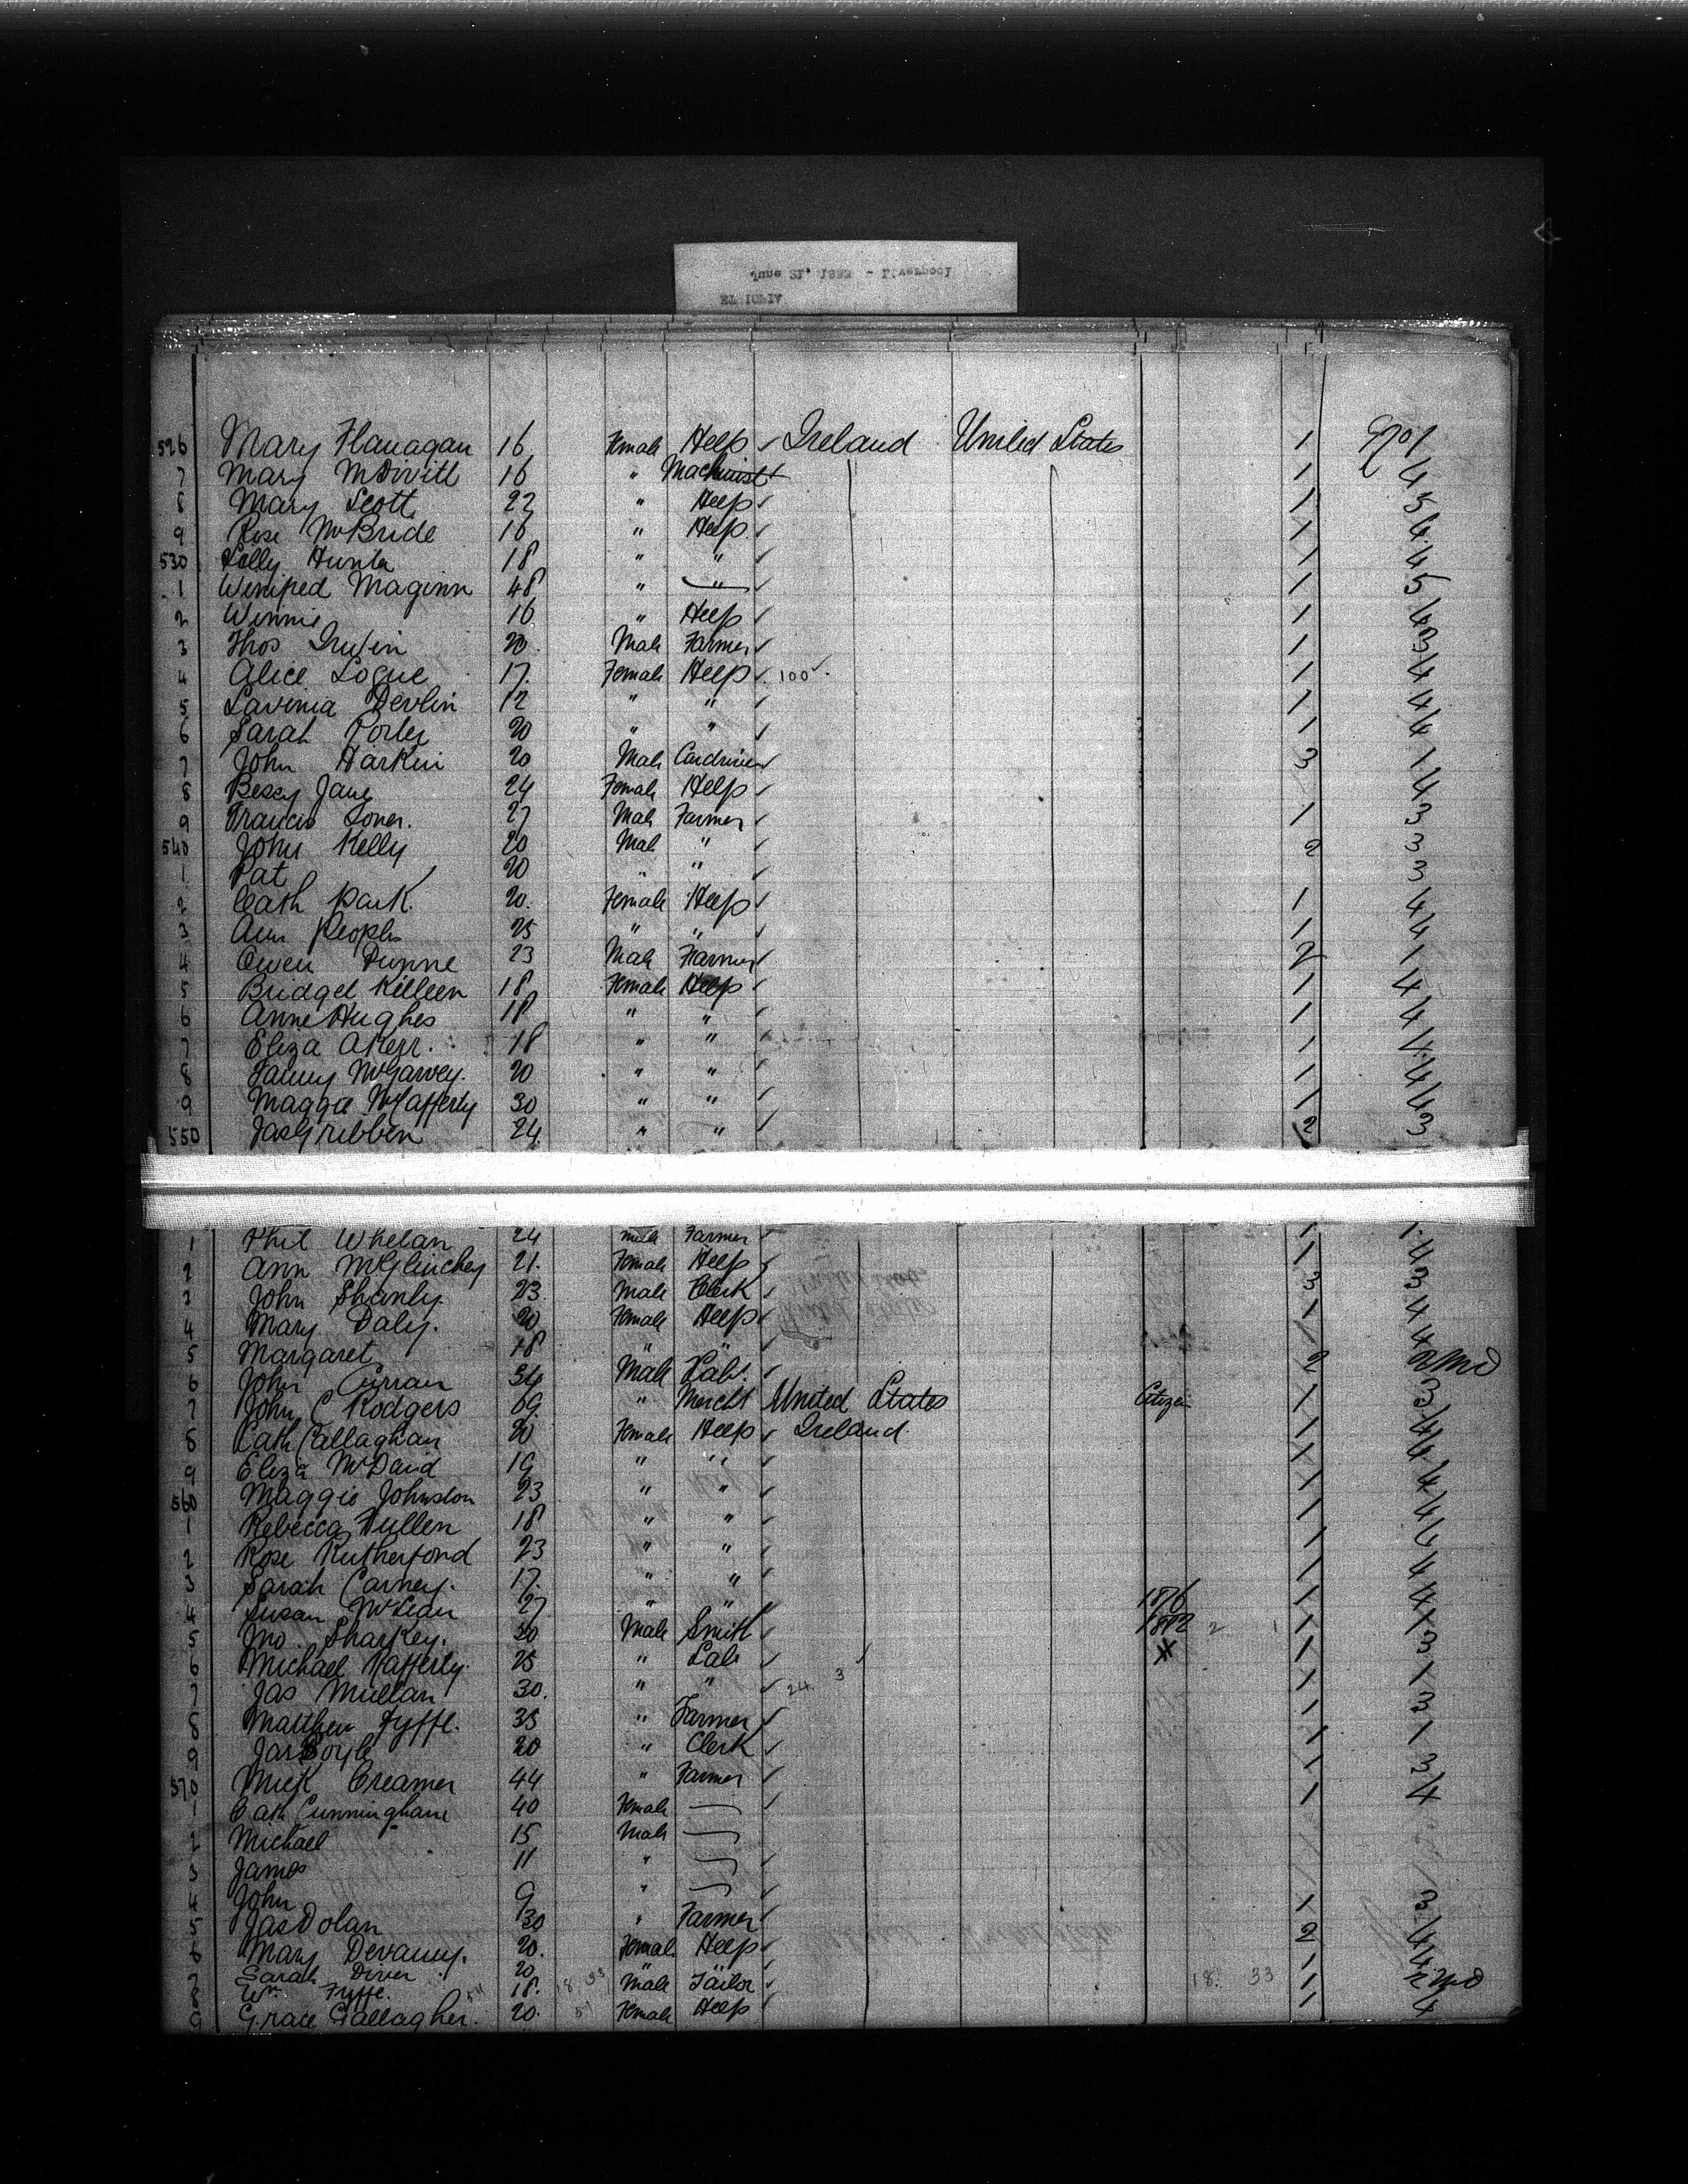 526 Mary Flanagan 16 Female Help ✓ Ireland United States 1
7 Mary McDivitt 16 " Machinist 1 4
8 Mary Scott 22 " Help ✓ 1 3
9 Rose McBride 16 " Help ✓ 1 4
530 Hunter 18 " " ✓ 1 4
1 Winifred Maginn 48 " " ✓ 1 5
2 Winnie 16 " Help ✓ 1 4
3 Thos Irwin 20 Male Farmer ✓ 1 3
4 Alice Logue 17 Female Help ✓ 100 ✓ 1 4
5 Lavinia Devlin 12 " " ✓ 1 4
6 Sarah Porter 20 " " ✓ 1 4
7 John Harkin 20 Male Cardriver ✓ 3 1
8 Bessy Jane 24 Female Help ✓ 4
9 Francis 27 Male Farmer ✓ 1 3
540 John Kelly 20 Male " ✓ 2 3
1 Pat 20 " " ✓ 3
2 Cath Park 20 Female Help ✓ 1 4
3 Ann Peoples 25 " " ✓ 1 4
4 Owen Dunne 23 Male Farmer ✓ 2 1
5 Bridget Killeen 18 Female Help ✓ 1 4
6 Anne Hughes 18 " " ✓ 1 4
7 Eliza 18 " " ✓ 1
8 Fanny McGarvey 20 " " ✓ 1 4
9 Maggie McCafferty 30 " " ✓ 1 4
550 Jas Gribben 24 " " ✓ 2 3
1 Phil Whelan 24 Male Farmer ✓ 1 1
2 Ann McGlinchey 21 Female Help 1 4
3 John Shanly 23 Male Clerk ✓ 3 3
4 Mary Daly 20 Female Help ✓ 1 4
5 Margaret 18 " " ✓ 4
6 John Curran 34 Male Lab. ✓ 2 2 Md
7 John C Rodgers 69 " Mercht United States Citizen 1 3
8 Cath Callaghan 20 Female Help ✓ Ireland 1 4
9 Eliza McDaid 19 " " ✓ 1 4
560 Maggie Johnston 23 " " ✓ 1 4
1 Rebecca Cullen 18 " " ✓ 1 4
2 Rose Rutherford 23 " " ✓ 1
3 Sarah Carney 17 " " ✓ 1 4
4 Susan McLean 27 " " ✓ 1876 1 4
5 Jno. Sharkey 30 Male Smith ✓ 1882 2 1 1 1
6 Michael Rafferty 25 " Lab ✓ X 1 3
7 Jas Mullan 30 " " ✓ 24 3 1 1
8 Matthew Fyffe 35 " Farmer ✓ 1 3
9 Jas Boyle 20 " Clerk ✓ 1 1
570 Mick Creamer 44 " Farmer ✓ 1 3
1 Cath Cunningham 40 Female — ✓ 1 4
2 Michael 15 Male —
3 James 11 " — ✓
4 John 9 " — ✓
5 Jas Dolan 30 " Farmer ✓ 1 3
6 Mary Devanny 20 Female Help ✓ 2 4
7 Sarah Diver 20 " " ✓ 1 4
8 Wm Fyffe 54 18 18 33 Male Tailor ✓ 18 33 1 2 Md
9 Grace Gallagher 20 51 Female Help ✓ 1 4